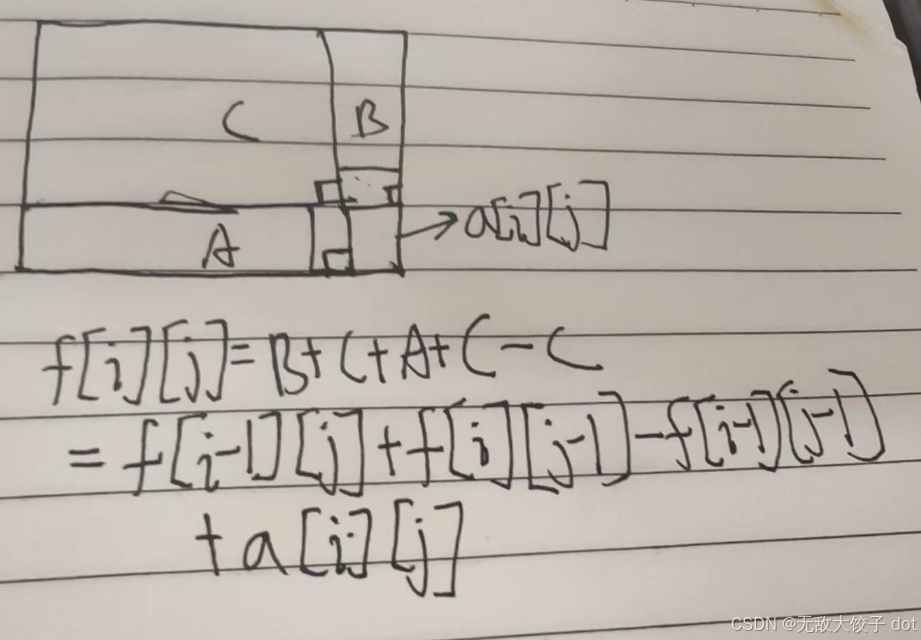 C B
A → a[i][j]
f[i][j]=B+C+A+C-C
=f[i-1][j]+f[i][j-1]-f[i-1][j-1]
+a[i][j]
CSDN @无敌大饺子 dot